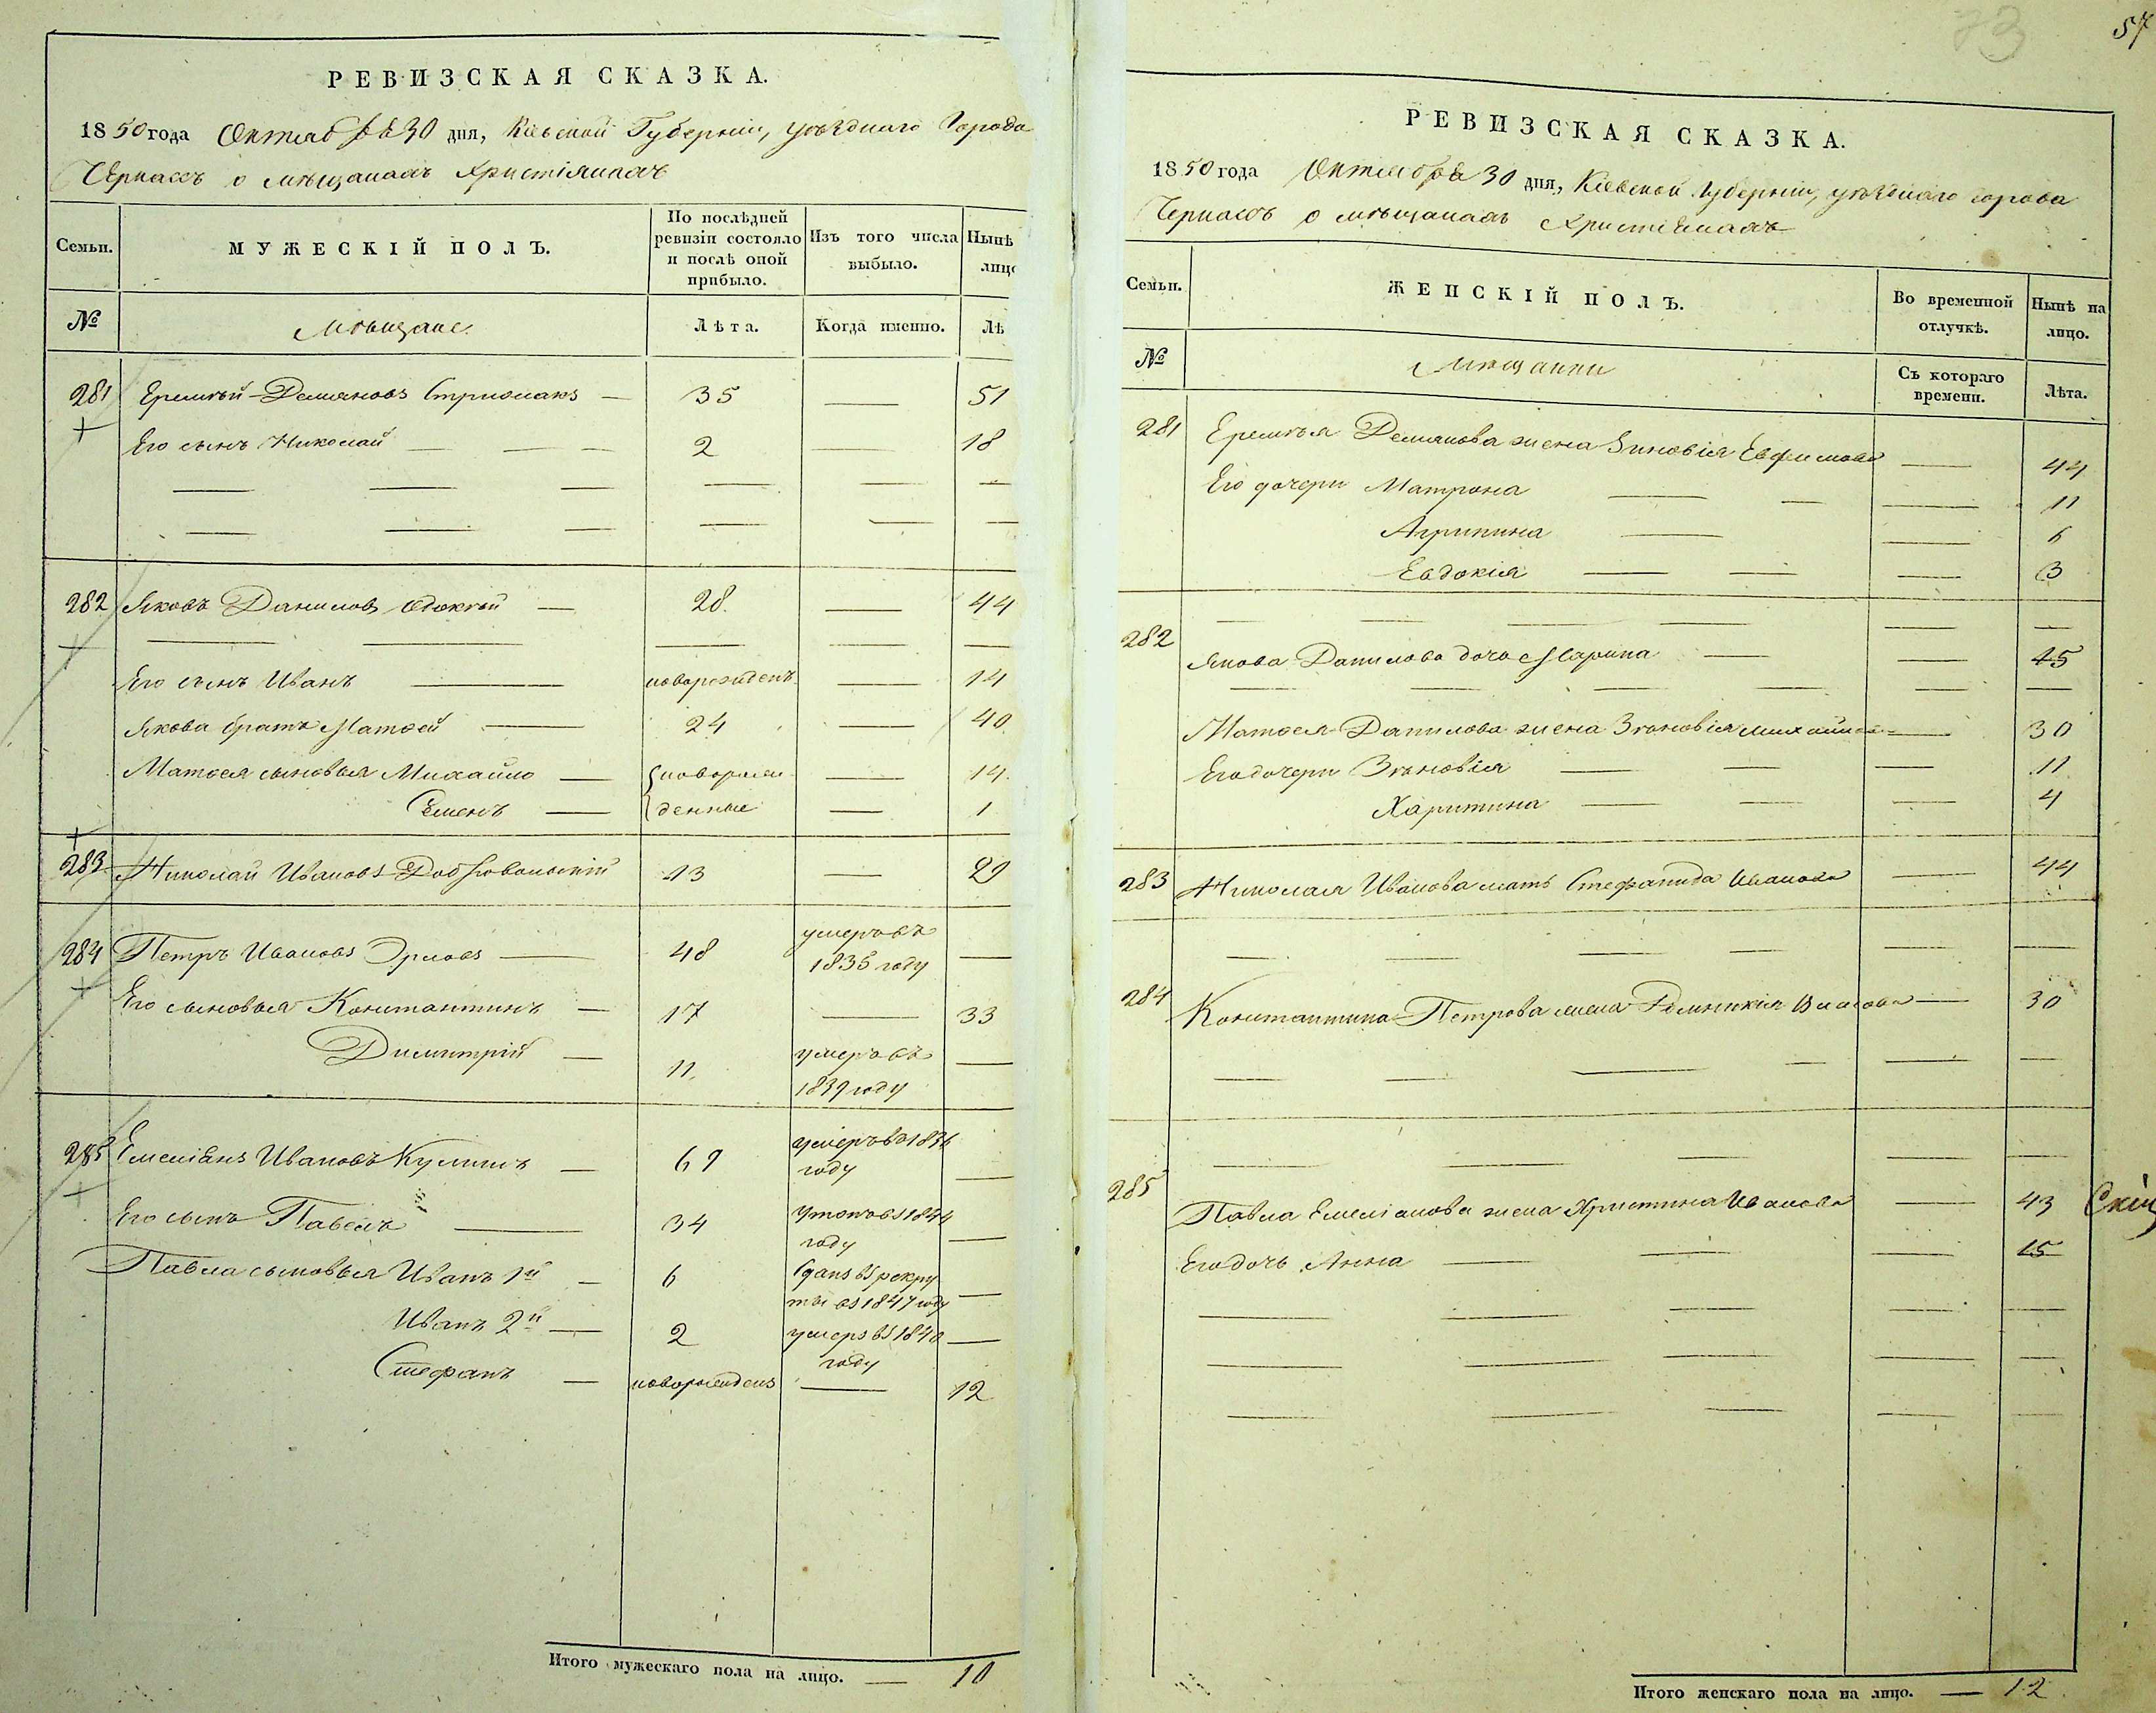 РЕВИЗСКАЯ СКАЗКА.
1850 года Октября 30 дня, Кіевской Губерніи, уѣзднаго Города
Черкасъ о мѣщанахъ христіянахъ
Семьи.
МУЖЕСКІЙ ПОЛЪ.
По послѣдней ревизіи состояло и послѣ оной прибыло.
Изъ того числа выбыло.
Нынѣ лицо
№
Мѣщане.
Лѣта.
Когда именно.
Лѣ
281 Еремѣй Демяновъ — 35 — 51
Его сынъ Николай — — — 2 — 18
282 Яковъ Даниловъ — 28. — 44
Его сынъ Иванъ — новорожденъ — 14
Якова братъ Матөей — 24 — 40
Матөея сыновья Михайло — новорож — 14.
Семенъ — денные — 1
283 Николай Ивановъ Добровольскій 13 — 29
284 Петръ Ивановъ — 48 умеръ въ —
1835 году
Его сыновья Константинъ — 17 — 33
Димитрій — 11. умеръ въ —
1839 году
285 Емеліанъ Ивановъ — 69 умеръ въ 1836
году —
Его сынъ Павелъ — 34 утонъ въ 1844
году —
Павла сыновья Иванъ 1й — 6 Сданъ въ рекру
ты въ 1847 году —
Иванъ 2й — 2 умеръ въ 1840 —
году
Стефанъ — новорожденъ — 12
Итого мужескаго пола на лицо. — 10
73
57
РЕВИЗСКАЯ СКАЗКА.
1850 года Октября 30 дня, Кіевской Губерніи, уѣзднаго города
Черкасъ о мѣщанахъ Христіянахъ
Семьи.
ЖЕНСКІЙ ПОЛЪ.
Во временной отлучкѣ.
Нынѣ на лицо.
№
Мѣщанки
Съ котораго времени.
Лѣта.
281 Еремѣя Демянова жена Зиновія Евфимова — 44
Его дочери Матрона — — — 11
Агрипина — — 6
Евдокія — — — 3
282
Якова Данилова дочь Марина — — 15
Матөея Данилова жена Зѣновія — 30
Его дочери Зѣновія — — — 11
Харитина — — — 4
283 Николая Иванова мать Стефанида Иванова — 44
284 Константина Петрова жена Власова — 30
285
Павла Емеліанова жена Христина Иванова — 43
Его дочь Анна — — — 15
Итого женскаго пола на лицо. — 12